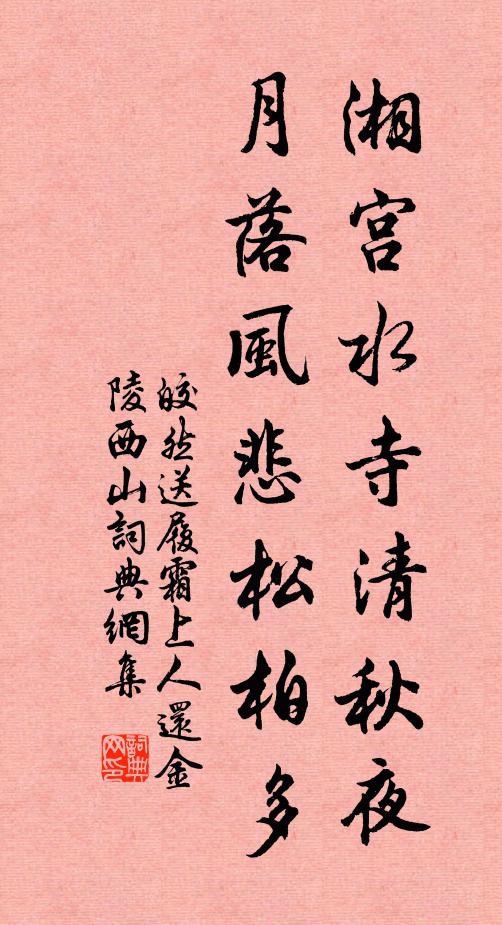 湘宮水寺清秋夜
月落風悲松柏多
皎然送履霜上人還金
陵西山詞典網集
詞典网印